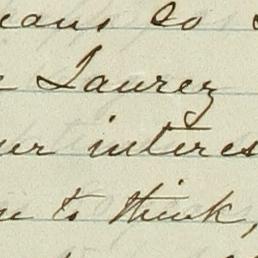 eans to
Laurez
ur interes
to think,